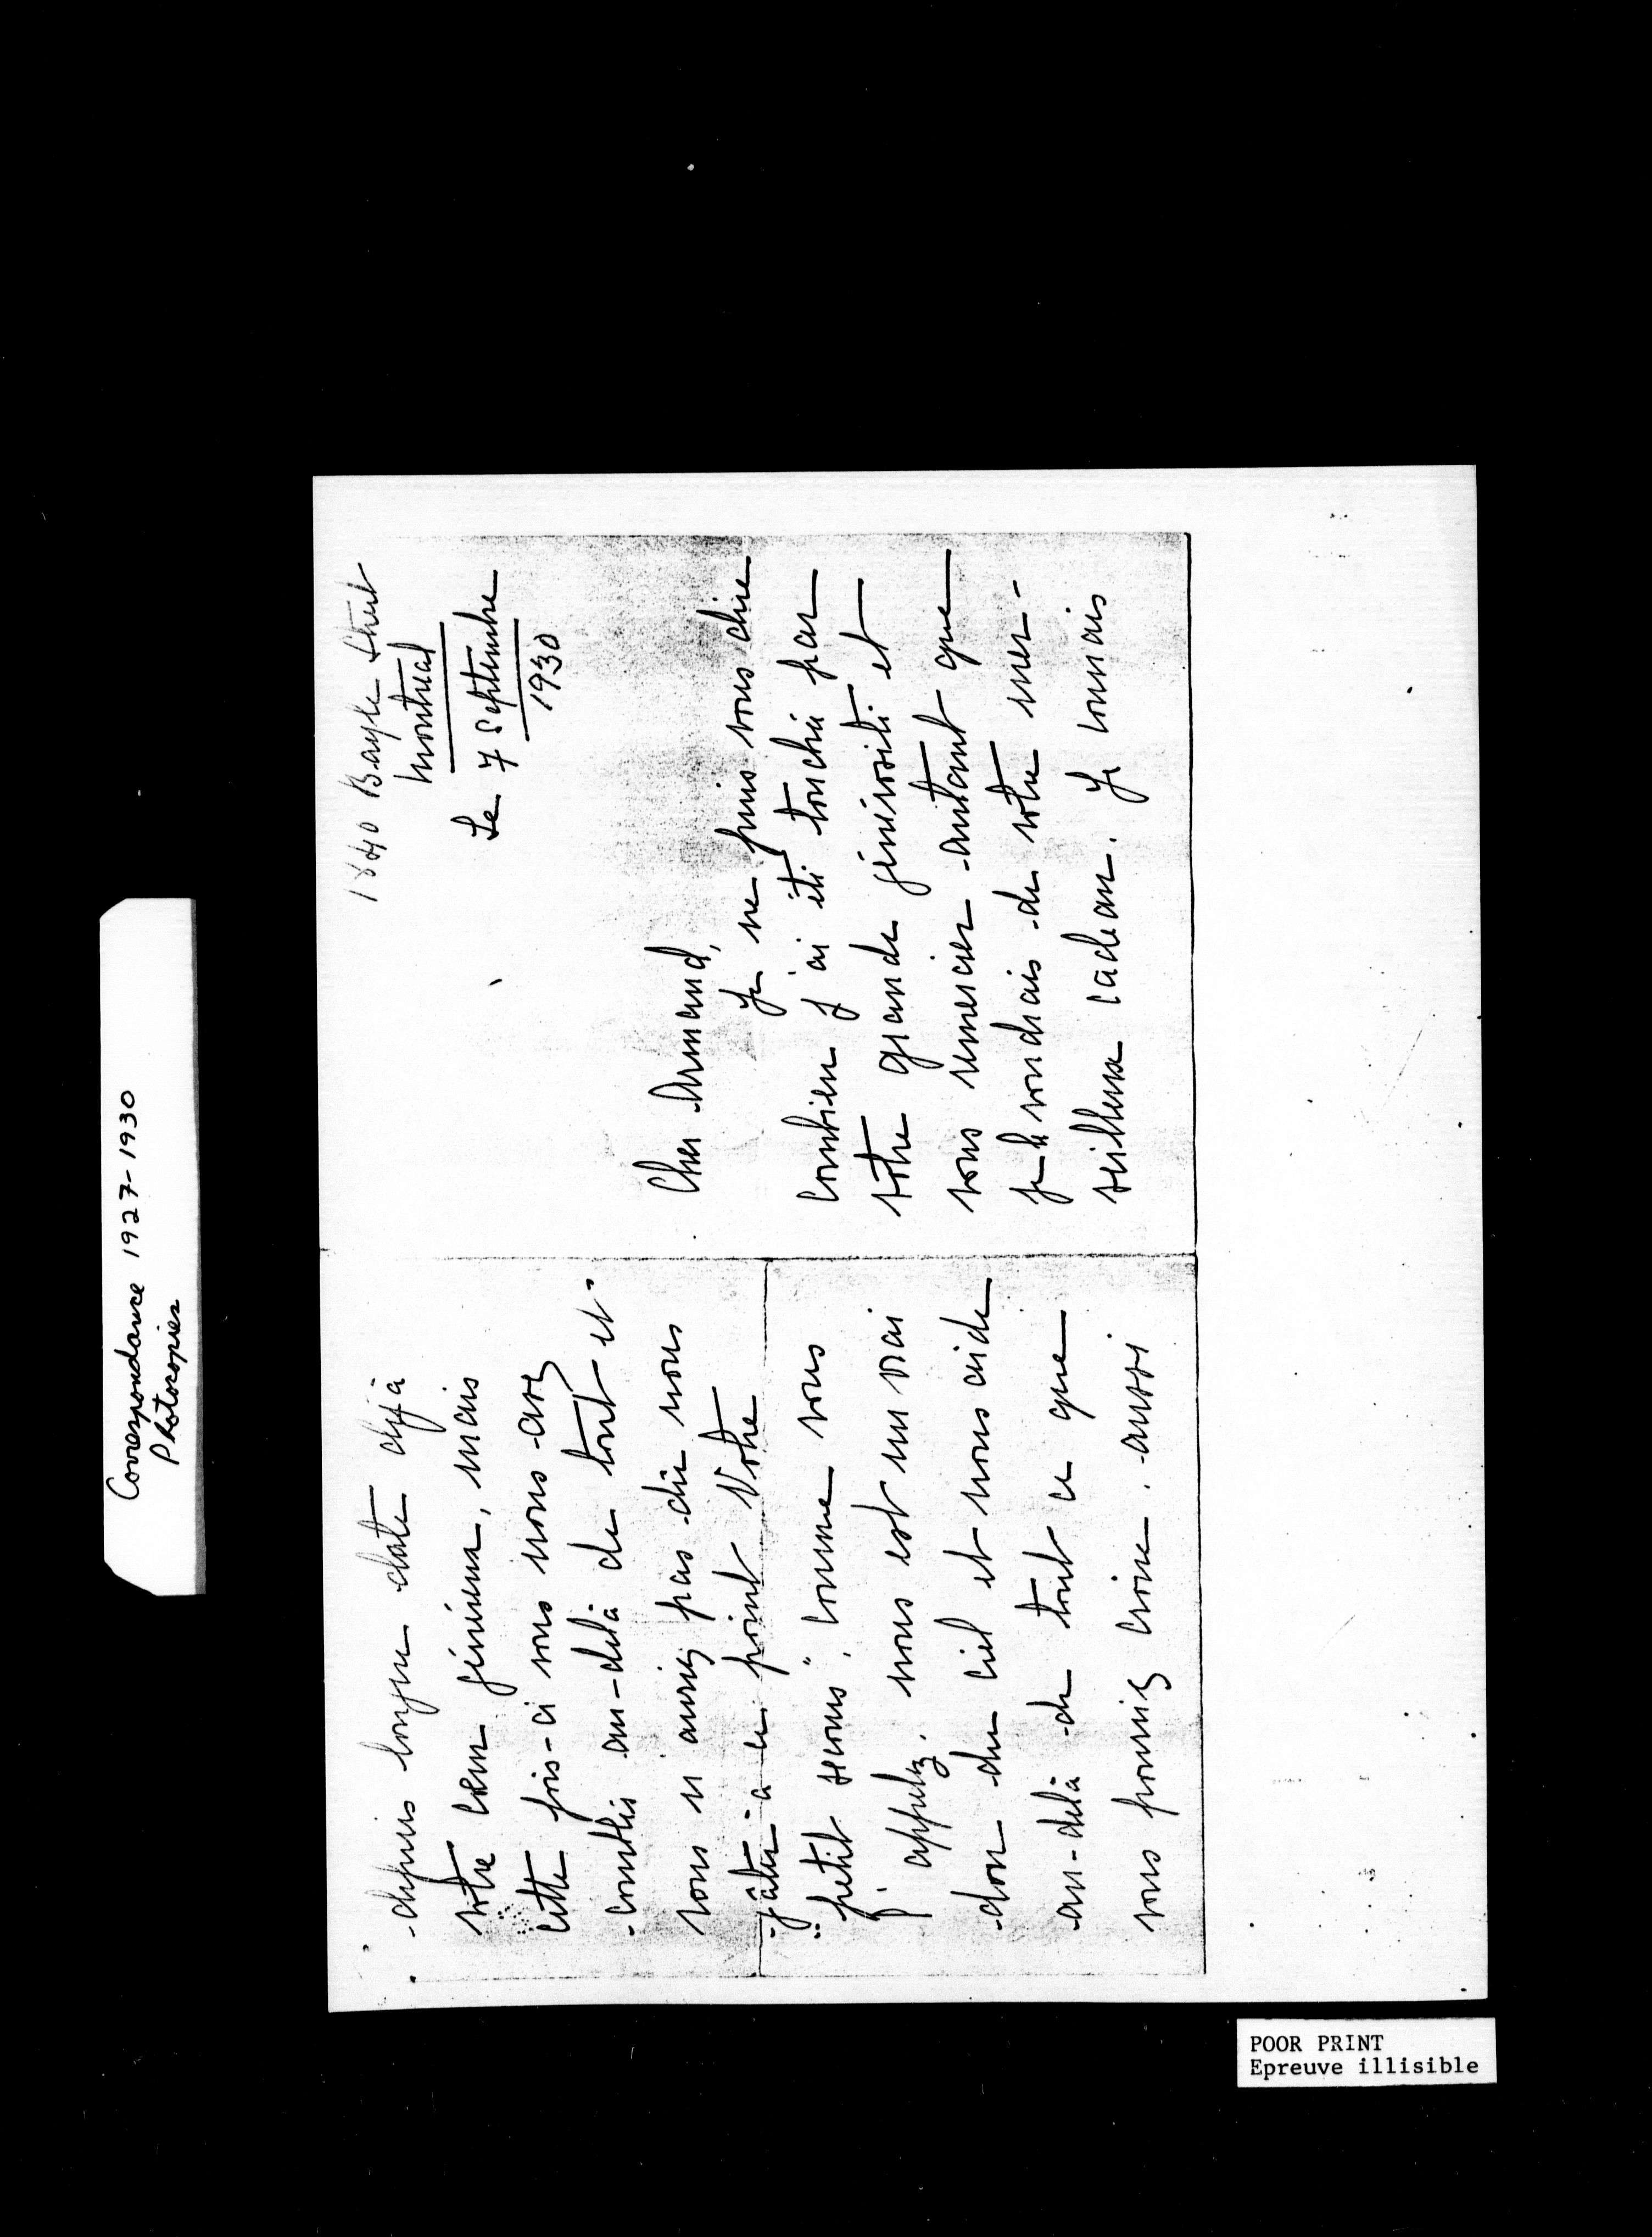 Correspondance 1927-1930
Photocopies
1840 Bayle Street
Montreal
Le 7 Septembre
1930
Cher Armand,
Je ne puis vous dire
combien j'ai été touchée par
votre grande générosité et
vous remercier autant que
je le voudrais de votre mer-
veilleux cadeau. Je connais
depuis longue date déjà
votre coeur généreux, mais
cette fois-ci vous nous avez
comblés au-delà de tout et
vous n'auriez pas dû nous
gâter à ce point. Votre
"petit secours", comme vous
l'appelez, nous est un vrai
don du ciel et nous aide
au-delà de tout ce que
vous pouviez croire. aussi
POOR PRINT
Epreuve illisible